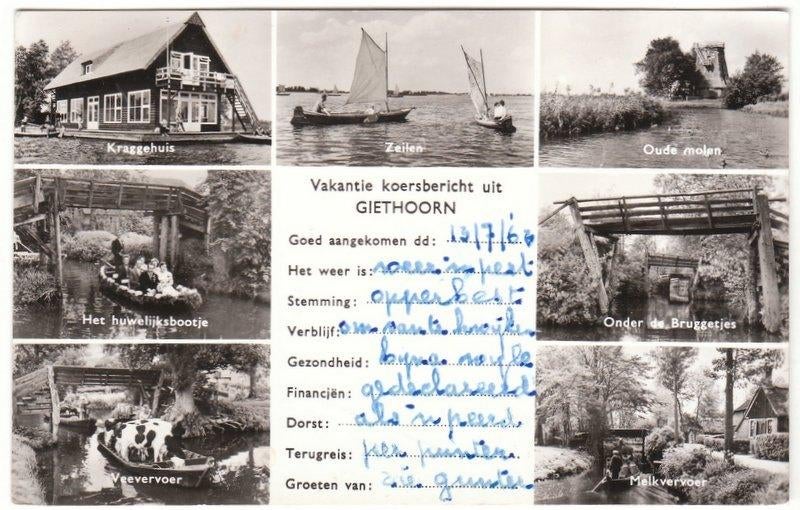 Kraggehuis
Zeilen
Oude molen
Vakantie koersbericht uit
GIETHOORN
Goed aangekomen dd: 13/7/63
Het weer is: weer 'n pest
Stemming: opperbest
Verblijf: om van te kwijlen
Gezondheid: bijna
Financiën: gedeclareerd
Dorst: als 'n peerd
Terugreis: per punter
Groeten van: die gunter
Het huwelijksbootje
Onder de Bruggetjes
Veevervoer
Melkvervoer